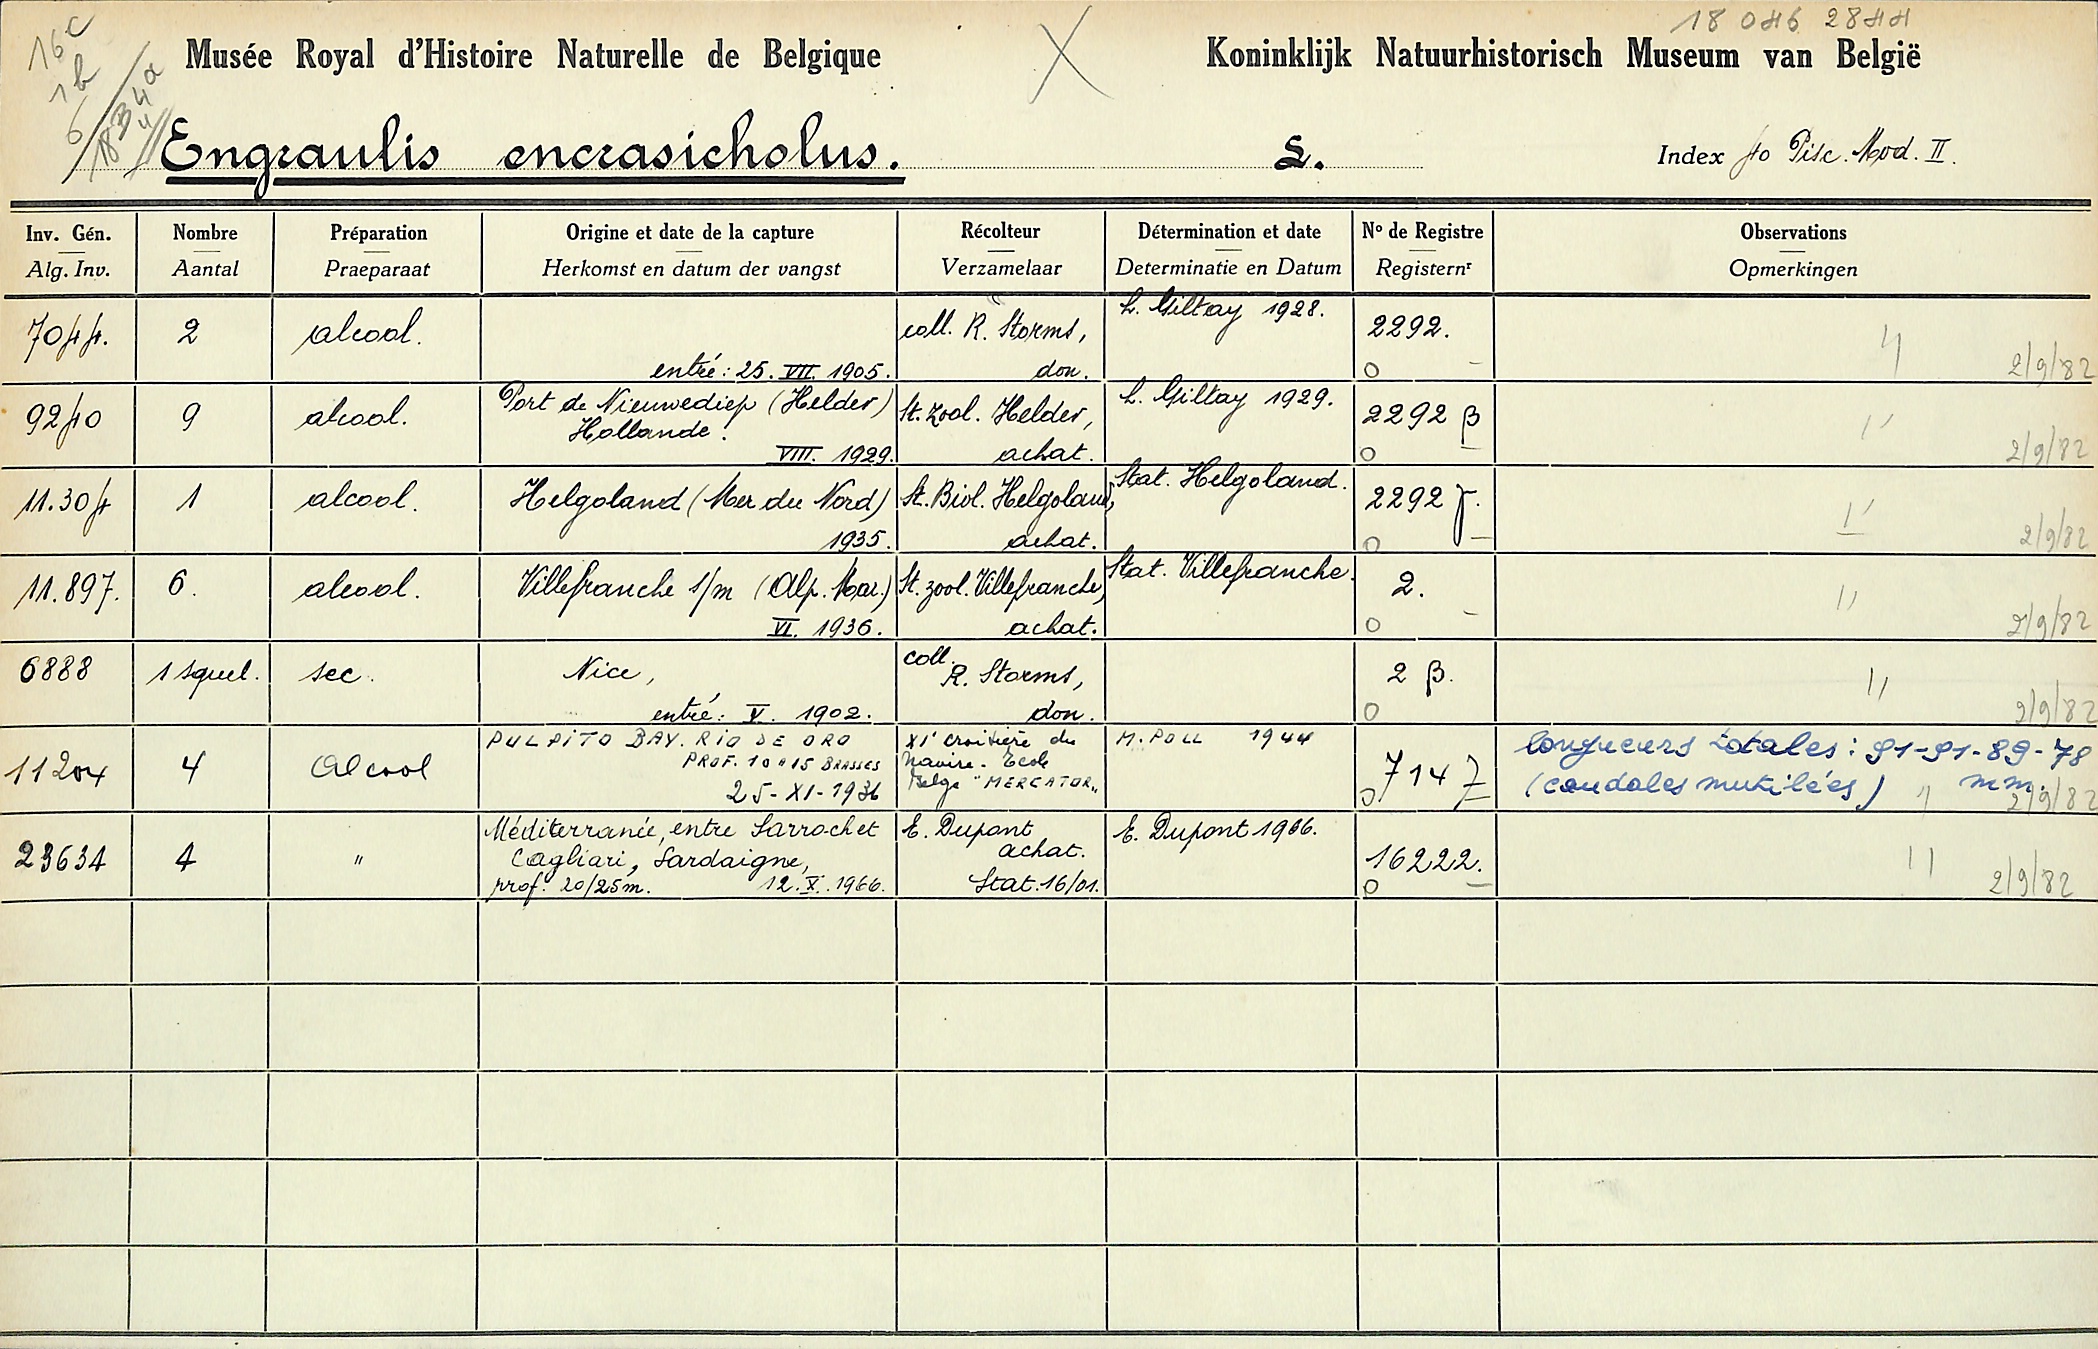 16c
1b
6
18B4a
4
18 046 2844
Musée Royal d'Histoire Naturelle de Belgique
X
Koninklijk Natuurhistorisch Museum van België
Engraulis encrasicholus.
L.
Index 40 Pisc. Mod. II.
Inv. Gén.
Alg. Inv.
Nombre
Aantal
Préparation
Praeparaat
Origine et date de la capture
Herkomst en datum der vangst
Récolteur
Verzamelaar
Détermination et date
Determinatie en Datum
No de Registre
Registernr
Observations
Opmerkingen
7044.
2
alcool.
entrée: 25. VII. 1905.
coll. R. Storms,
don.
L. Giltay 1928.
2292.
O -
"
2/9/82
9240
9
alcool.
Port de Nieuwediep (Helder)
Hollande.
VIII. 1929.
St. zool. Helder,
achat.
L. Giltay 1929.
2292 β
O -
"
2/9/82
11.304
1
alcool.
Helgoland (Mer du Nord)
1935.
St. Biol. Helgoland,
achat.
Stat. Helgoland.
2292 γ.
O -
"
2/9/82
11.897.
6.
alcool.
Villefranche s/m (Alp. Mar.)
VI. 1936.
St. zool. Villefranche,
achat.
Stat. Villefranche.
2.
O -
"
2/9/82
6888
1 squel.
sec.
Nice,
entré: V. 1902.
coll.
R. Storms,
don.
2 β.
O
"
2/9/82
11204
4
Alcool
PULPITO BAY. RIO DE ORO
PROF. 10 à 15 BRASSES
25-XI-1936
XIe croisière du
Navire-Ecole
Belge "MERCATOR"
M. POLL 1944
7147
O -
longueurs totales: 91-91-89-78
(caudales mutilées) mm.
"
2/9/82
23634
4
"
Méditerranée, entre Sarroch et
Cagliari, Sardaigne,
prof. 20/25m. 12.X.1966.
E. Dupont
achat.
Stat. 16/01.
E. Dupont 1966.
16222.
O -
"
2/9/82